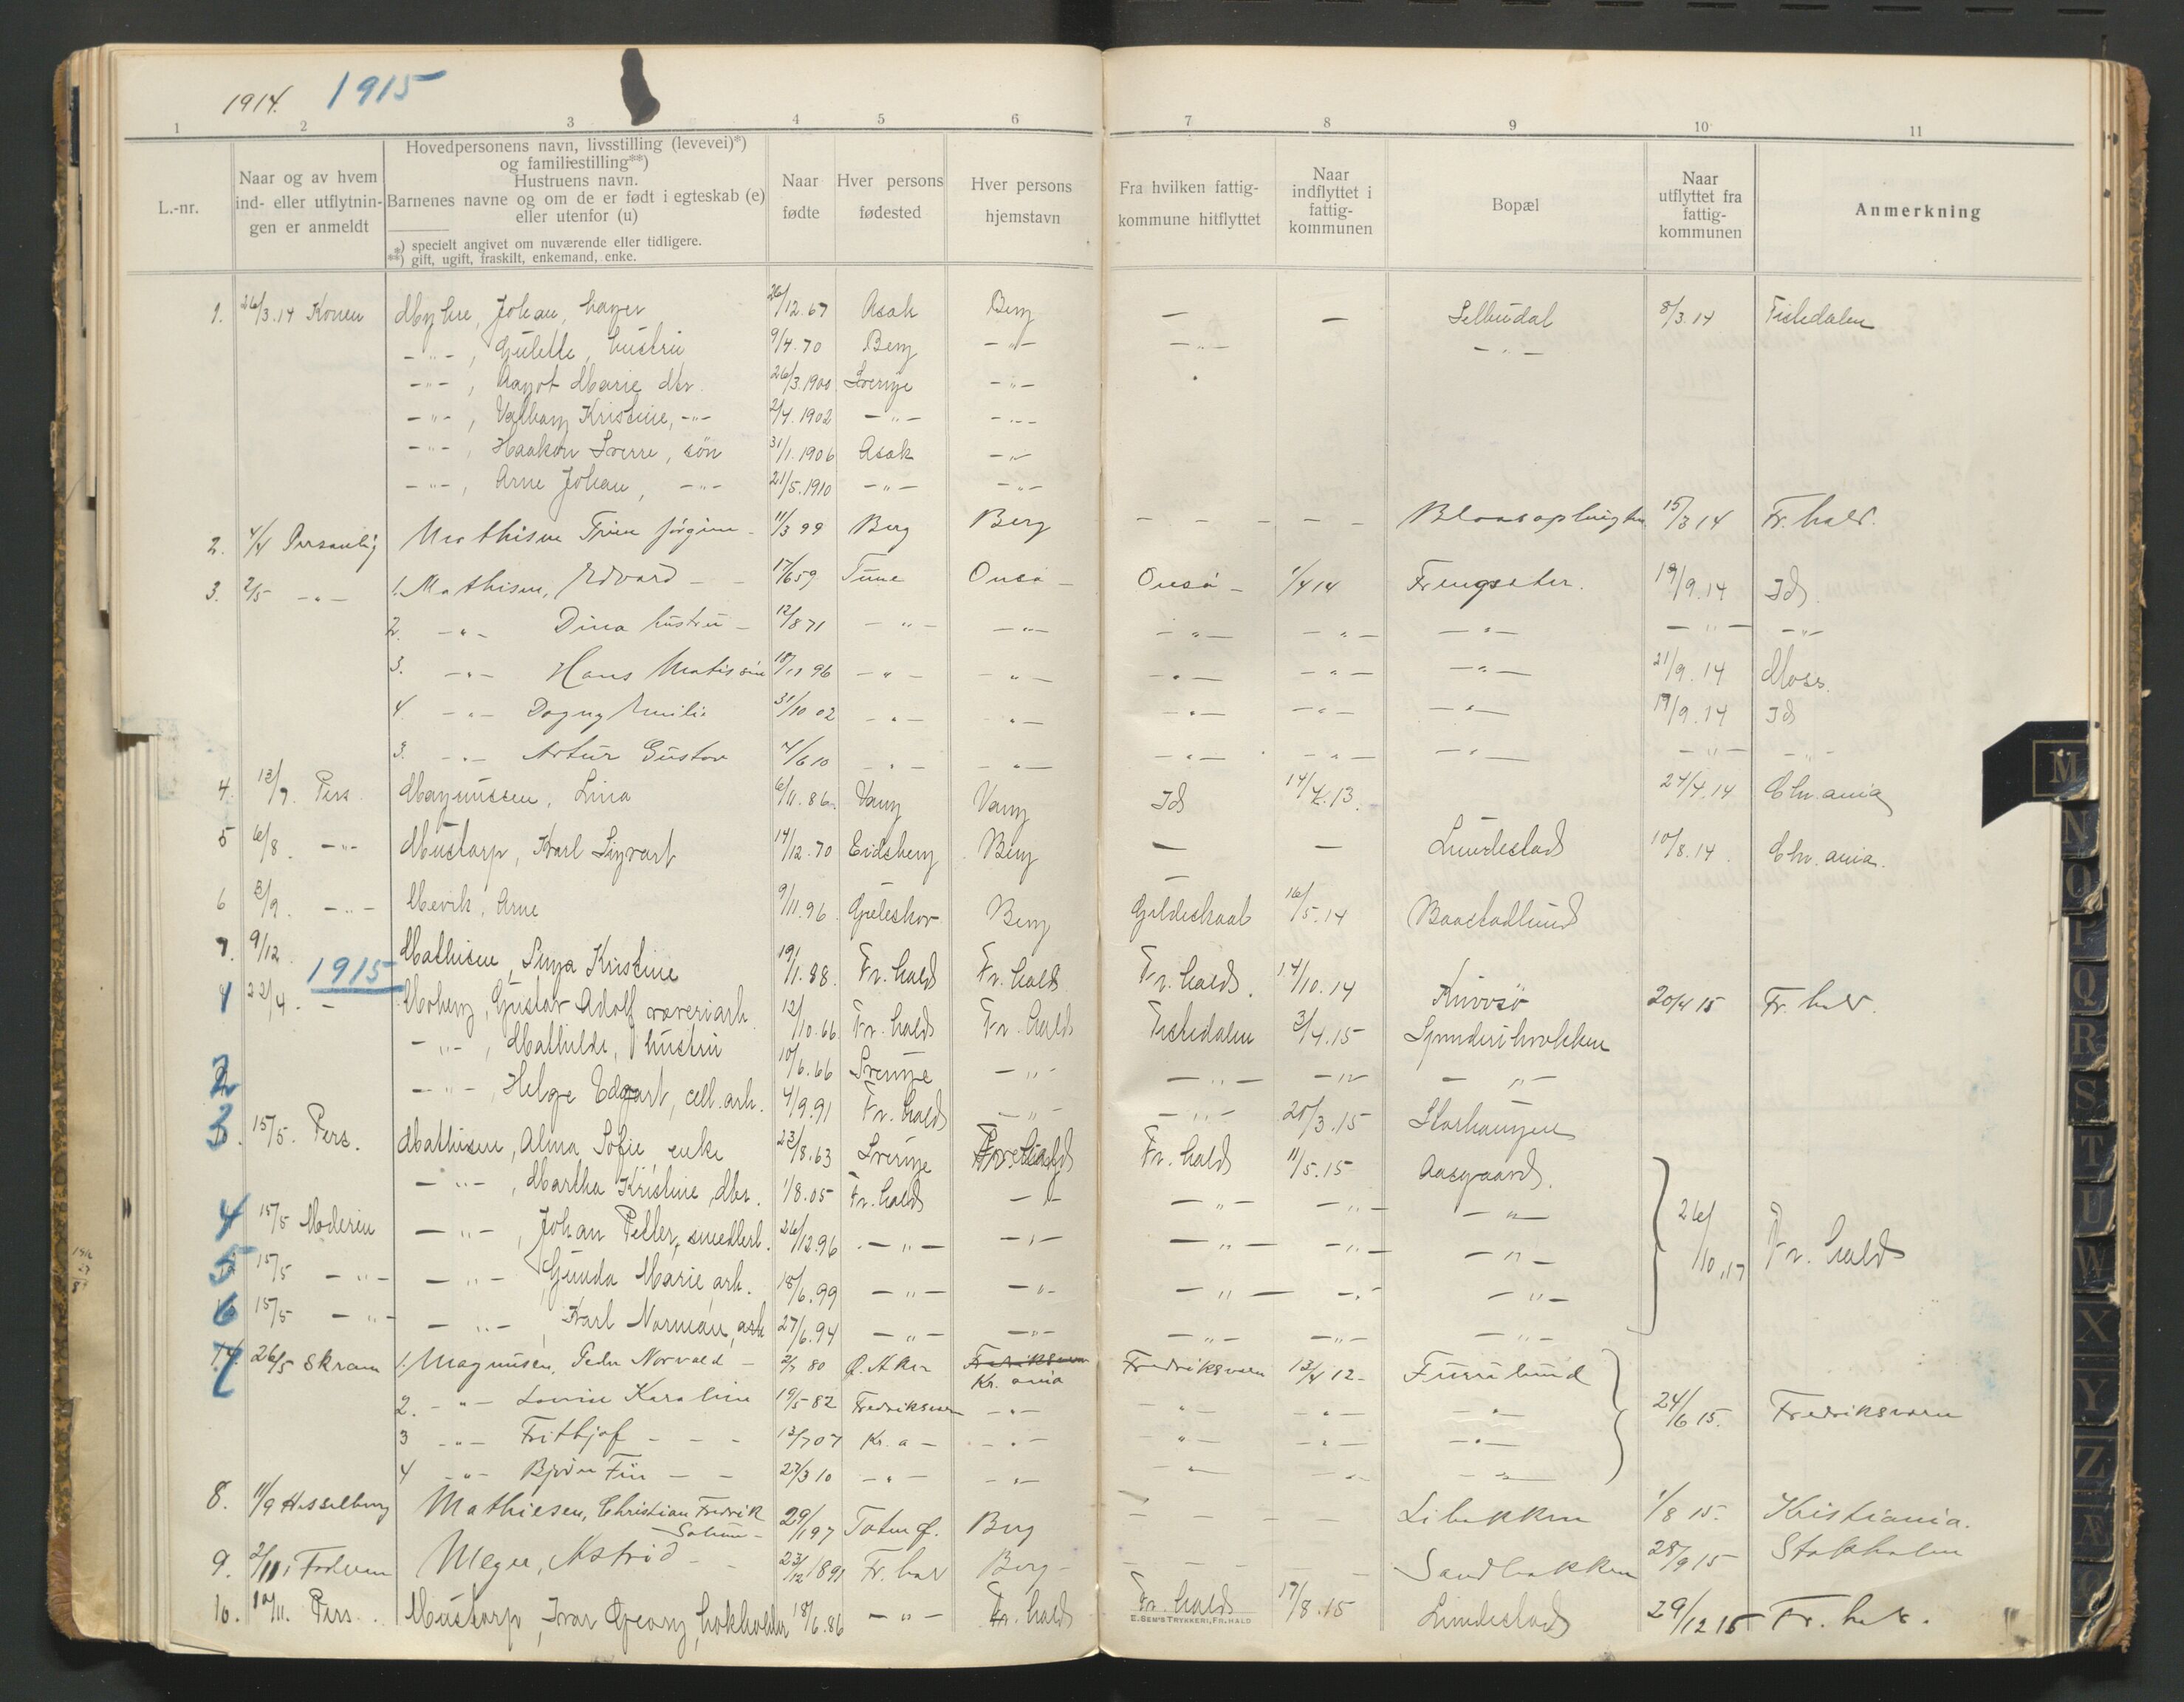 1914. 1915
1 2 3 4 5 6 7 8 9 10 11
L.-nr.
Naar og av hvem ind- eller utflytnin- gen er anmeldt
Hovedpersonens navn, livsstilling (levevei)*)
og familiestilling**)
Hustruens navn.
Barnenes navne og om de er født i egteskab (e)
eller utenfor (u)
*) specielt angivet om nuværende eller tidligere.
**) gift, ugift, fraskilt, enkemand, enke.
Naar fødte
Hver persons fødested
Hver persons hjemstavn
Fra hvilken fattig- kommune hitflyttet
Naar indflyttet i fattig- kommunen
Bopæl
Naar utflyttet fra fattig- kommunen
Anmerkning
1. 26/3.14 Konen Myhre, Johan, 26/12.67 Asak Berg — — Selbudal 8/3.14 Tistedalen
-"-, Gulette, hustru 9/4.70 Berg -"- -"- -"-
-"-, Aagot Marie dtr. 26/3.1900 Sverige -"-
-"-, Valborg Kristine, -"- 2/4.1902 -"- -"-
-"-, Haakon Sverre, søn 31/1.1906 Asak -"-
-"-, Arne Johan, -"- 21/5.1910 -"- -"-
2. 4/4 Personlig Mathisen Trine Jørgine 11/3 99 Berg Berg - - - - - 15/3 14 Fr.hald.
3. 2/5 -"- 1. Mathisen, Edvard - - 17/6 59 Tune Onsø - Onsø - 1/4 14 19/9.14 Id
2. -"- Dina hustru - 12/8 71 -"- -"- -"- -"- -"- -"- -"-
3. -"- Hans Matis søn 18/11 96 -"- -"- -"- -"- -"- 21/9.14 Moss.
4. -"- Dagny Emilie 31/10 02 -"- -"- -"- -"- -"- 19/9.14 Id
3. -"- Artur Gustav 4/6 10 -"- -"- -"- -"- -"- -"- -"-
4. 13/7. Pers. Magnussen, Lina 6/11.86. Vang Vang Id 14/4.13. 24/4.14 Chr.ania
5 6/8. -"- Mustorp, Karl Sigvart 14/12.70 Eidsberg Berg — — Lundestad 10/8.14. Chr.ania.
6 3/9. -"- Mevik, Arne 9/11.96. Berg Gildeskaal 16/5.14 Baastadlund
7. 9/12. Mathisen, Kristine 19/1.88. Fr.hald Fr.hald Fr.hald. 14/10.14 Knivsø 20/4 15 Fr.hald.
1915
1 22/4. - Moberg, Gustav Adolf 12/10.66 Fr.hald Fr.hald Tistedalen 3/4.15
-"-, Mathilde, hustru 10/6.66 Sverige -"- -"- -"- -"-
2 -"-, Helge Edgart, cell.arb. 4/9.91 Fr.hald -"- -"- 25/3.15 Storhaugen
3. 15/5. Pers. Mathisen, Alma Sofie enke 23/8.63 Sverige Fr.hald 11/5.15 Aasgaard.
-"-, Martha Kristine, dtr. 1/8.05 Fr.hald -"- -"- -"- -"-
4 15/5 Moderen -"-, Johan Petter, 26/12.96 -"- -"- -"- -"- -"- 26/10.17 Fr.hald
5 15/5 -"- -"-, Gunda Marie, arb. 18/6.99 -"- -"- -"- -"- -"-
6 15/5 -"- -"-, Karl Norman, arb 27/6.94 -"- -"- -"- -"- -"-
7 26/5 Skram 1. Magnusen, Peder Norvald - 2/7 80 Ø.Aker Fredriksvern Kr.ania Fredriksvern 13/4 12 - Furulund
2. -"- Lovise Karoline 19/5-82 Fredriksvern -"- -"- -"- -"- 24/6 15. Fredriksvern
3 -"- Frithjof - - - 13/7 07 Kr.a - -"- -"- -"- -"-
4 -"- Bjørn Finn - - 23/3 10 -"- -"- -"- -"- -"-
8. 11/9 Hesselberg Mathiesen, Christian Fredrik 29/1 97 Toten Ø. Berg - - - - Libakken 1/8 15. Kristiania.
9. 2/11 Faderen Meyer, Astrid - - 23/12 1891 Fr.hald Berg - - - - - Sandbakken 28/9 15 Stokholm
10. 10/11. Pers. Mustorp, Ivar Georg, 18/6.86 -"- Fr.hald Fr.hald 17/8.15 Lundestad 29/12 15 Fr.hald.
E. SEM'S TRYKKERI, FR.HALD
M
N
O
P
Q
R
S
T
U
W
X
Y
Z
Æ
Ø